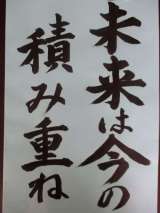 未来は今の
積み重ね